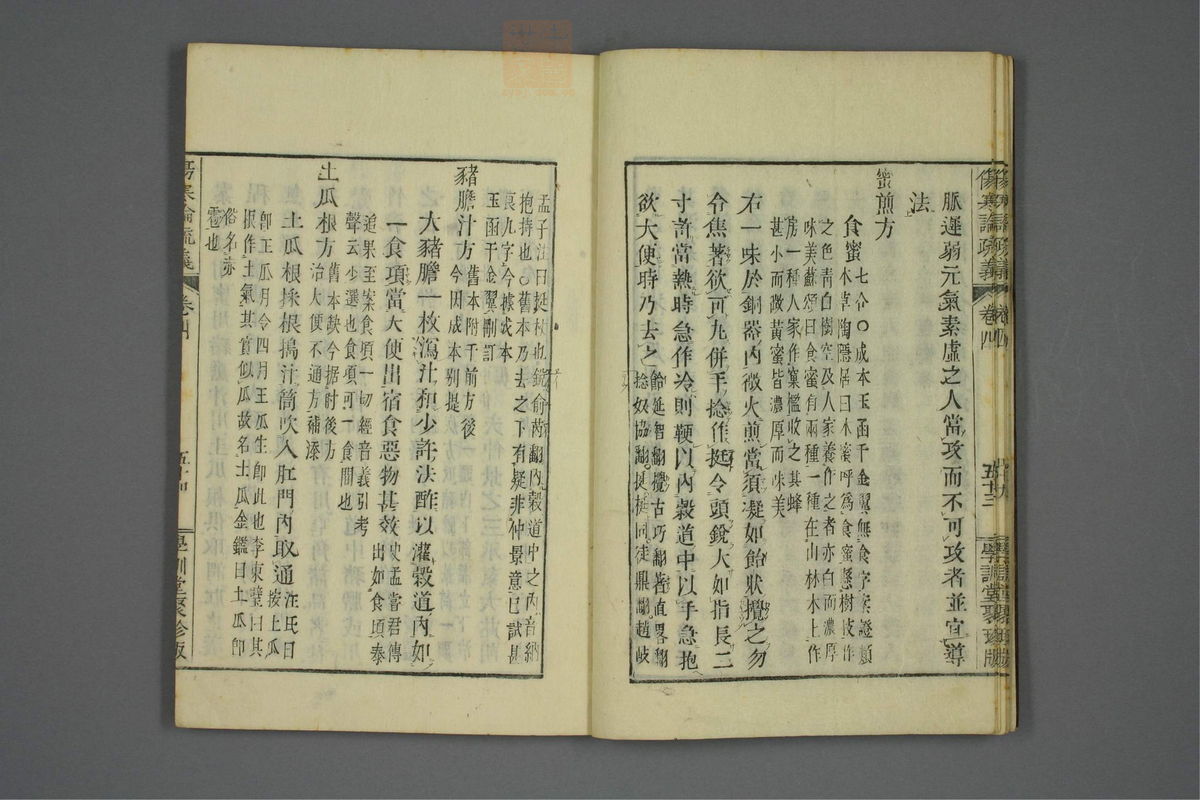 脈遲弱元氣素虛之人當攻而不可攻者並宜導
法
蜜煎方
食蜜七合○成本玉函千金翼無食字案證類
本草陶隱居曰木蜜呼爲食蜜懸樹枝作
之色青白樹空及人家養作之者亦白而濃厚
味美蘇頌曰食蜜有兩種一種在山林木上作
房一種人家作窠檻收之其蜂
甚小而微黃蜜皆濃厚而味美
右一味於銅器內微火煎當須凝如飴狀攪之勿
令焦著欲可丸併手捻作挺令頭銳大如指長二
寸許當熱時急作冷則鞕以內穀道中以手急抱
欲大便時乃去之
飴延智翻攪古巧翻著直畧翻
捻奴協翻挺梃同徒鼎翻趙岐
孟子注曰挺杖也銳俞芮翻內穀道中之內音納
抱持也○舊本乃去之下有疑非仲景意已試甚
良九字今據成本
玉函千金翼刪訂
豬膽汁方
舊本附于前方後
今因成本别提
大豬膽一枚瀉汁和少許法酢以灌穀道內如
一食頃當大便出宿食惡物甚效
史孟嘗君傳
出如食頃秦
追果至案食頃一切經音義引考
聲云少選也食頃可一食間也
土瓜根方
舊本缺今据肘後方
治大便不通方補添
土瓜根採根搗汁筒吹入肛門內取通
汪氏曰
按土瓜
卽王瓜月令四月王瓜生卽此也李東璧曰其
根作土氣其實似瓜故名土瓜金鑑曰土瓜卽
俗名赤
雹也
傷寒論疏義
卷四
五十三
學訓堂聚珍版
傷寒論疏義
卷四
五十四
學訓堂聚珍版